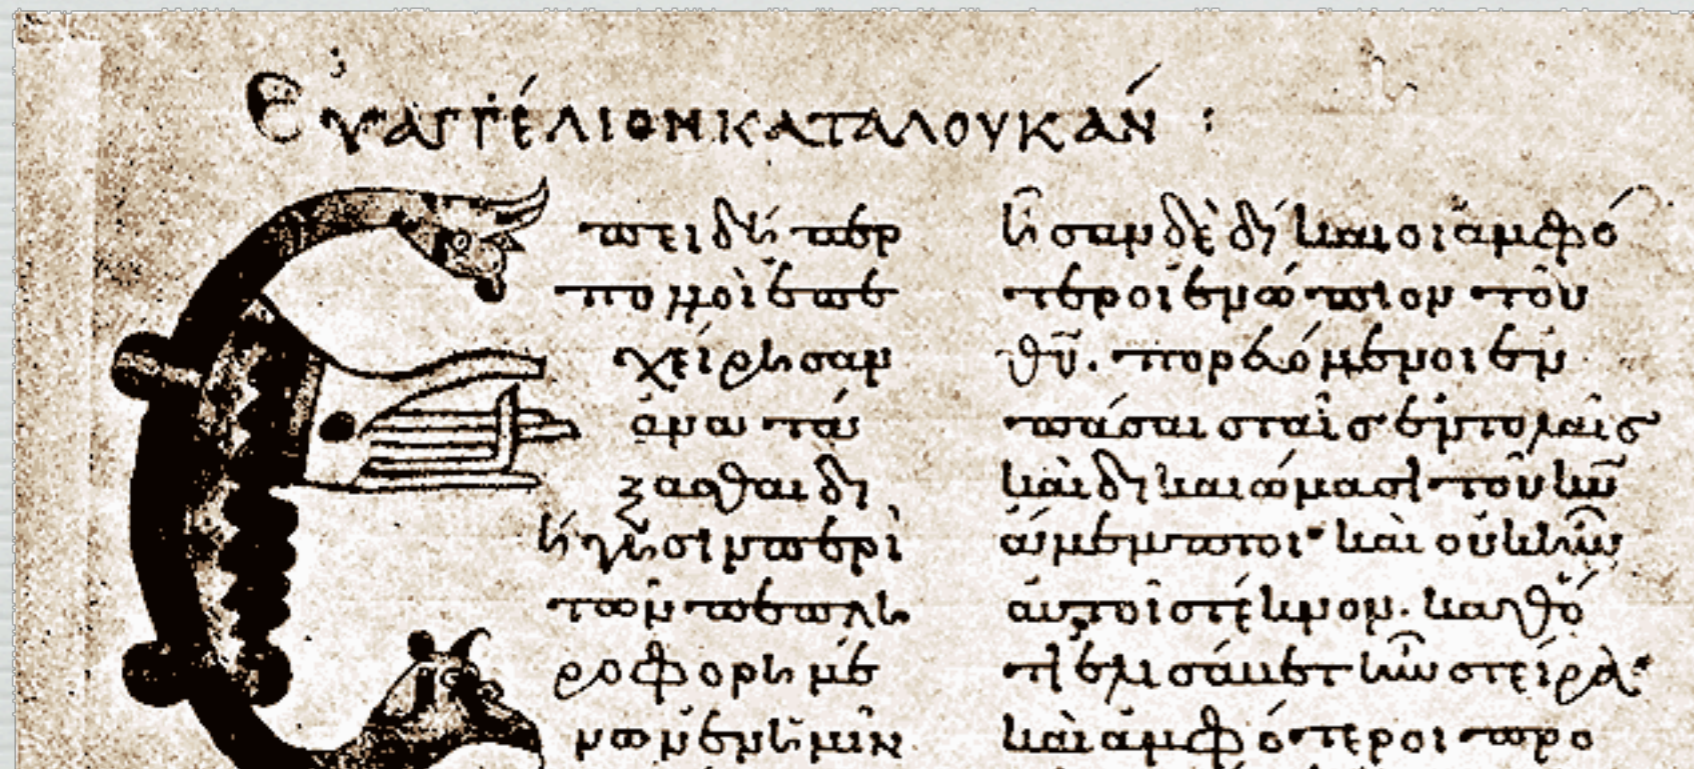 Ευαγγέλιον κατα λουκάν :
Ἐπειδήπερ
πολλοὶ ἐπε
χείρησαν
ἀνατά
ξασθαι δι
ήγησιν περὶ
τῶν πεπλη
ροφορημέ
νων ἐν ἡμῖν
ἦσαν δὲ δίκαιοι ἀμφό
τεροι ἐνώπιον τοῦ
θῦ. πορευόμενοι ἐν
πάσαις ταῖς ἐντολαῖς
καὶ δικαιώμασι τοῦ κῦ
ἄμεμπτοι· καὶ οὐκ ἦν
αὐτοῖς τέκνον. καθό
τι ἐλισάβετ ἦν στείρα·
καὶ ἀμφότεροι προ